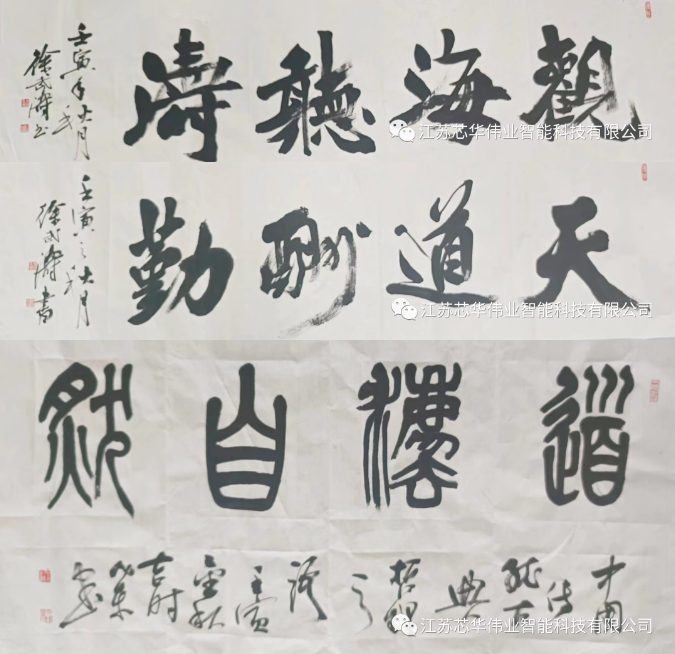 觀海聽濤
壬寅年秋月
江苏芯华伟业智能科技有限公司
天道酬勤
壬寅之秋月
江苏芯华伟业智能科技有限公司
道灋自然
中國之壬寅金秋吉時
江苏芯华伟业智能科技有限公司